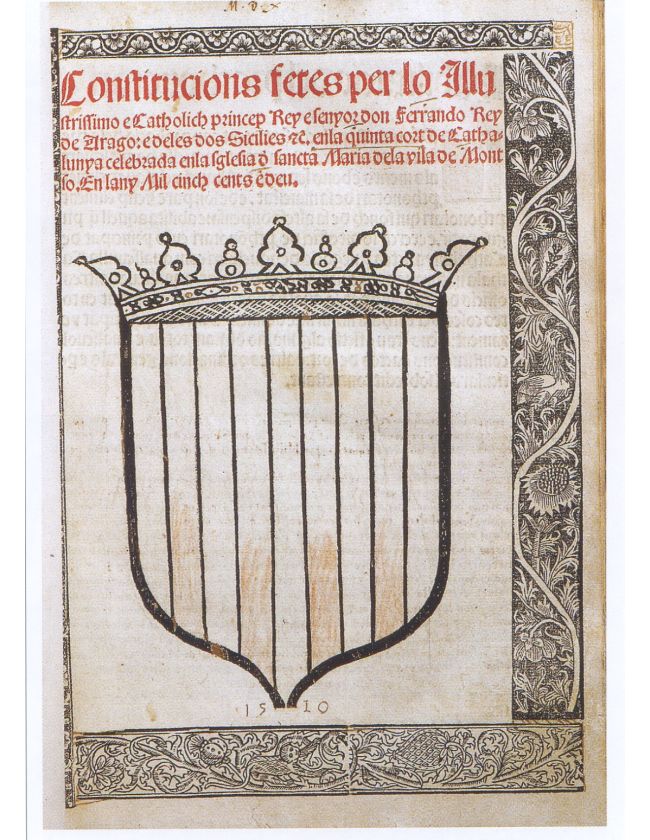 M. D. X
Constitucions fetes per lo Illu
strissimo e Catholich princep Rey e senyor don Ferrando Rey
de Arago: e deles dos Sicilies ⁊c̄. enla quinta cort de Catha-
lunya celebrada enla sglesia d̄ sanctā Maria dela vila de Mont
so. En lany Mil cinch cents e deu.
15 10